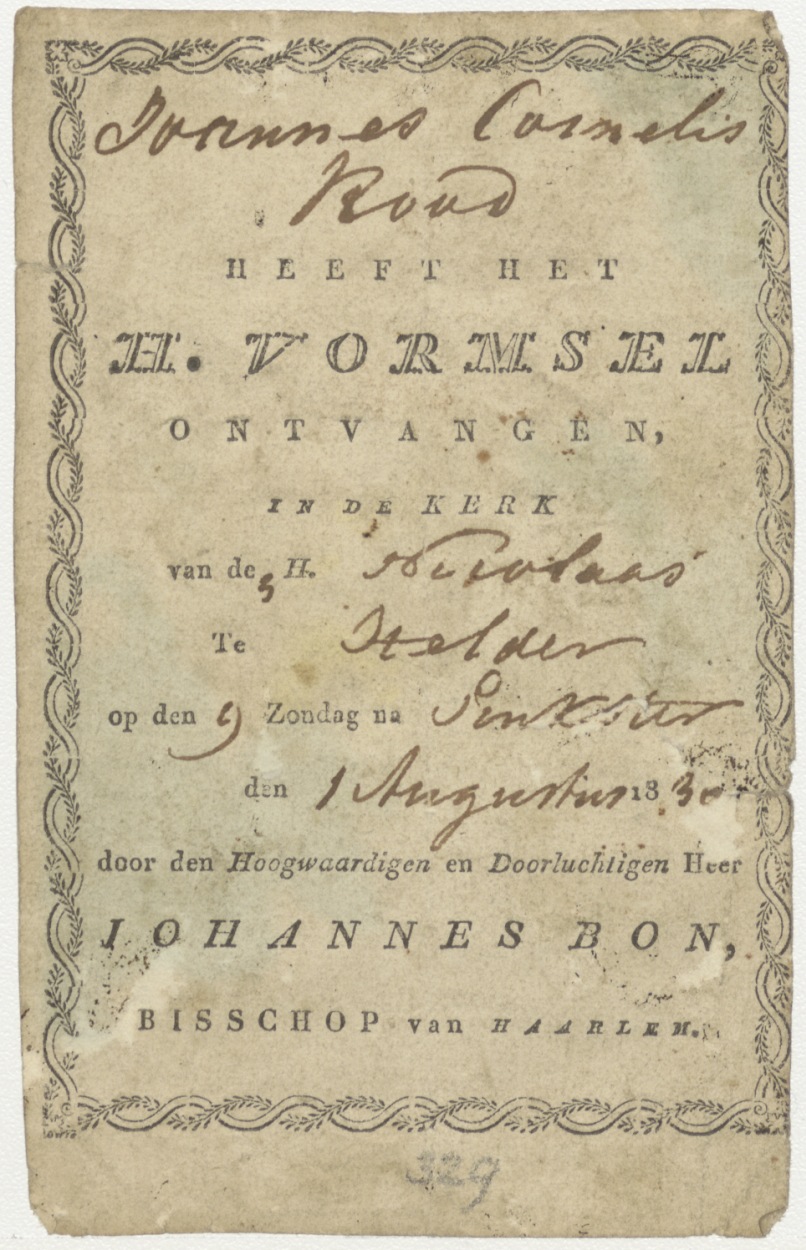 Joannes Cornelis
Rood
HEEFT HET
H. VORMSEL
ONTVANGEN,
IN DE KERK
van de, H. Nicolaas
Te Helder
op den 9 Zondag na Pinkster
den 1 Augustus 1830
door den Hoogwaardigen en Doorluchtigen Heer
JOHANNES BON,
BISSCHOP van HAARLEM.
329